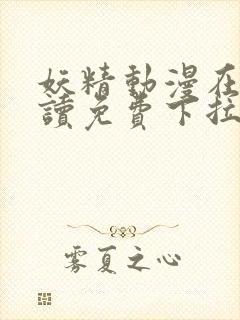 妖精動漫在
讀免費下拉
雾夏之心